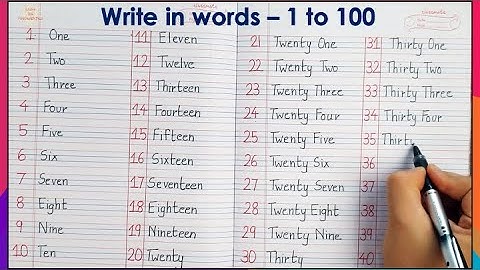 Write in words – 1 to 100
1. One
2. Two
3. Three
4 Four
5 Five
6 Six
7 Seven
8 Eight
9 Nine
10 Ten
11 Eleven
12 Twelve
13 Thirteen
14 Fourteen
15 Fifteen
16 Sixteen
17 Seventeen
18 Eighteen
19 Nineteen
20 Twenty
21 Twenty One
22 Twenty Two
23 Twenty Three
24 Twenty Four
25 Twenty Five
26 Twenty Six
27 Twenty Seven
28 Twenty Eight
29 Twenty Nine
30 Thirty
31 Thirty One
32 Thirty Two
33 Thirty Three
34 Thirty Four
35 Thirt
36
37
38
39
40